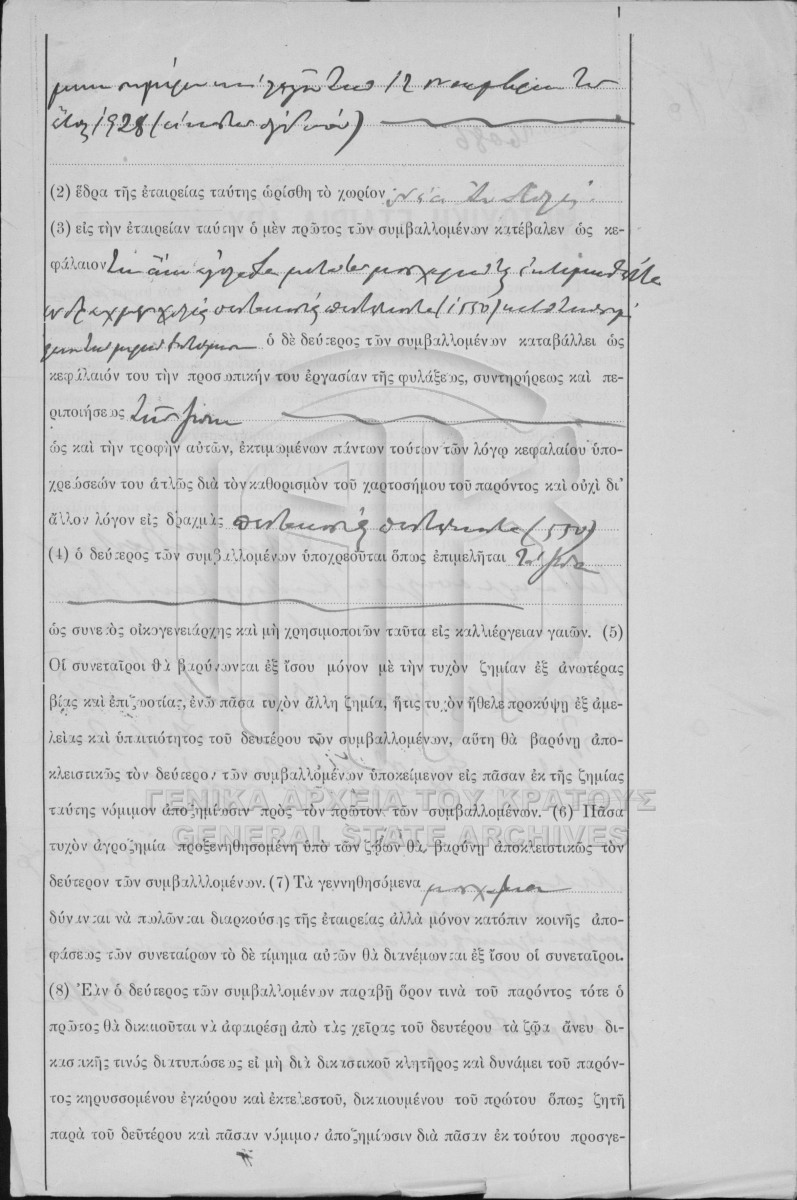 12 Νοεμβρίου του
έτους 1928 (είκοσι οκτώ)
(2) ἕδρα τῆς ἑταιρείας ταύτης ὡρίσθη τὸ χωρίον
(3) εἰς τὴν ἑταιρείαν ταύτην ὁ μὲν πρῶτος τῶν συμβαλλομένων κατέβαλεν ὡς κε-
φάλαιον
δραχμὰς χιλίας πεντακοσίας πεντήκοντα (1550) καὶ
ὁ δὲ δεύτερος τῶν συμβαλλομένων καταβάλλει ὡς
κεφάλαιόν του τὴν προσωπικήν του ἐργασίαν τῆς φυλάξεως, συντηρήρεως καὶ πε-
ριποιήσεως τῶν ζώων
ὡς καὶ τὴν τροφὴν αὐτῶν, ἐκτιμωμένων πάντων τούτων τῶν λόγῳ κεφαλαίου ὑπο-
χρεώσεών του ἁπλῶς διὰ τὸν καθορισμὸν τοῦ χαρτοσήμου τοῦ παρόντος καὶ οὐχὶ δι'
ἄλλον λόγον εἰς δραχμὰς πεντακοσίας πεντήκοντα (550)
(4) ὁ δεύτερος τῶν συμβαλλομένων ὑποχρεοῦται ὅπως ἐπιμελῆται τὰ ζῶα
ὡς συνετὸς οἰκογενειάρχης καὶ μὴ χρησιμοποιῶν ταῦτα εἰς καλλιέργειαν γαιῶν. (5)
Οἱ συνεταῖροι θὰ βαρύνωνται ἐξ ἴσου μόνον μὲ τὴν τυχὸν ζημίαν ἐξ ἀνωτέρας
βίας καὶ ἐπιζωοτίας, ἐνῶ πᾶσα τυχὸν ἄλλη ζημία, ἥτις τυχὸν ἤθελε προκύψῃ ἐξ ἀμε-
λείας καὶ ὑπαιτιότητος τοῦ δευτέρου τῶν συμβαλλομένων, αὕτη θὰ βαρύνῃ ἀπο-
κλειστικῶς τὸν δεύτερον τῶν συμβαλλομένων ὑποκείμενον εἰς πᾶσαν ἐκ τῆς ζημίας
ταύτης νόμιμον ἀποζημίωσιν πρὸς τὸν πρῶτον τῶν συμβαλλομένων. (6) Πᾶσα
ΓΕΝΙΚΑ ΑΡΧΕΙΑ ΤΟΥ ΚΡΑΤΟΥΣ
GENERAL STATE ARCHIVES
τυχὸν ἀγροζημία προξενηθησομένη ὑπὸ τῶν ζώων θὰ βαρύνῃ ἀποκλειστικῶς τὸν
δεύτερον τῶν συμβαλλλομένων. (7) Τὰ γεννηθησόμενα μοσχάρια
δύνανται νὰ πωλῶνται διαρκούσης τῆς ἑταιρείας ἀλλὰ μόνον κατόπιν κοινῆς ἀπο-
φάσεως τῶν συνεταίρων τὸ δὲ τίμημα αὐτῶν θὰ διανέμωνται ἐξ ἴσου οἱ συνεταῖροι.
(8) Ἐὰν ὁ δεύτερος τῶν συμβαλλομένων παραβῇ ὅρον τινὰ τοῦ παρόντος τότε ὁ
πρῶτος θὰ δικαιοῦται νὰ ἀφαιρέσῃ ἀπὸ τὰς χεῖρας τοῦ δευτέρου τὰ ζῶα ἄνευ δι-
καστικῆς τινός διατυπώσεως εἰ μὴ διὰ δικαστικοῦ κλητῆρος καὶ δυνάμει τοῦ παρόν-
τος κηρυσσομένου ἐγκύρου καὶ ἐκτελεστοῦ, δικαιουμένου τοῦ πρώτου ὅπως ζητῇ
παρὰ τοῦ δεῦτέρου καὶ πᾶσαν νόμιμον ἀποζημίωσιν διὰ πᾶσαν ἐκ τούτου προσγε-